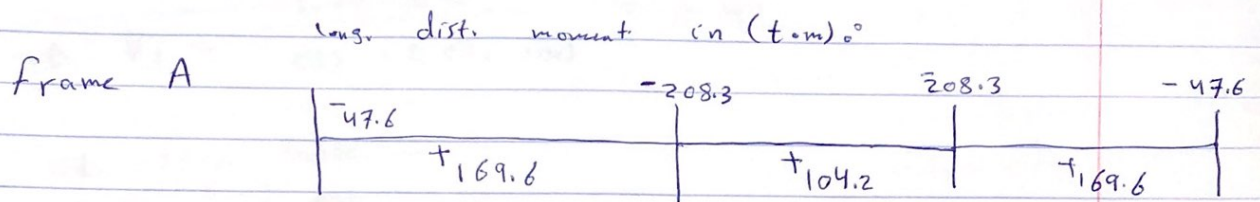 long. dist. moment in (t.m).
frame A
-47.6 -208.3 -208.3 -47.6
+169.6 +104.2 +169.6